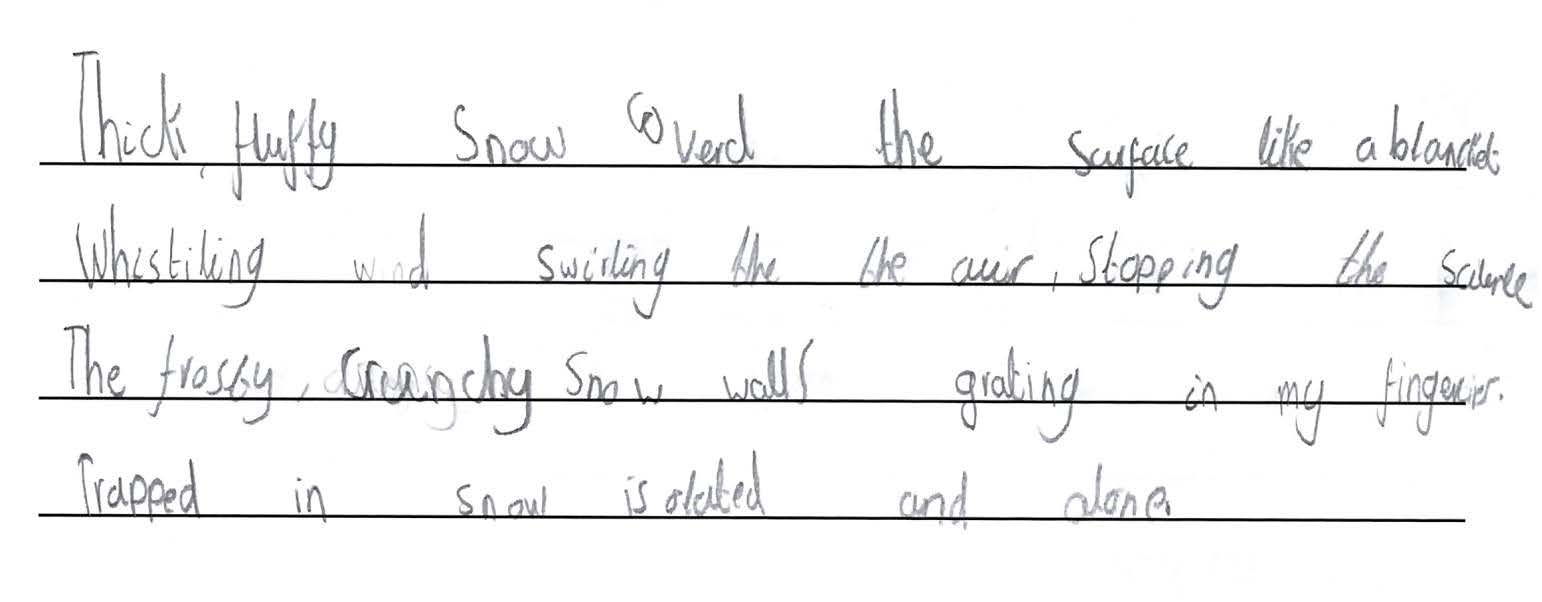 Thick, fluffy Snow coverd the surface like a blancket
Whistiling wind swirling the the auir, Stopping the scilence
The frosty, Crunchy Snow walls grating in my fingers.
Trapped in snow isolated and alone.